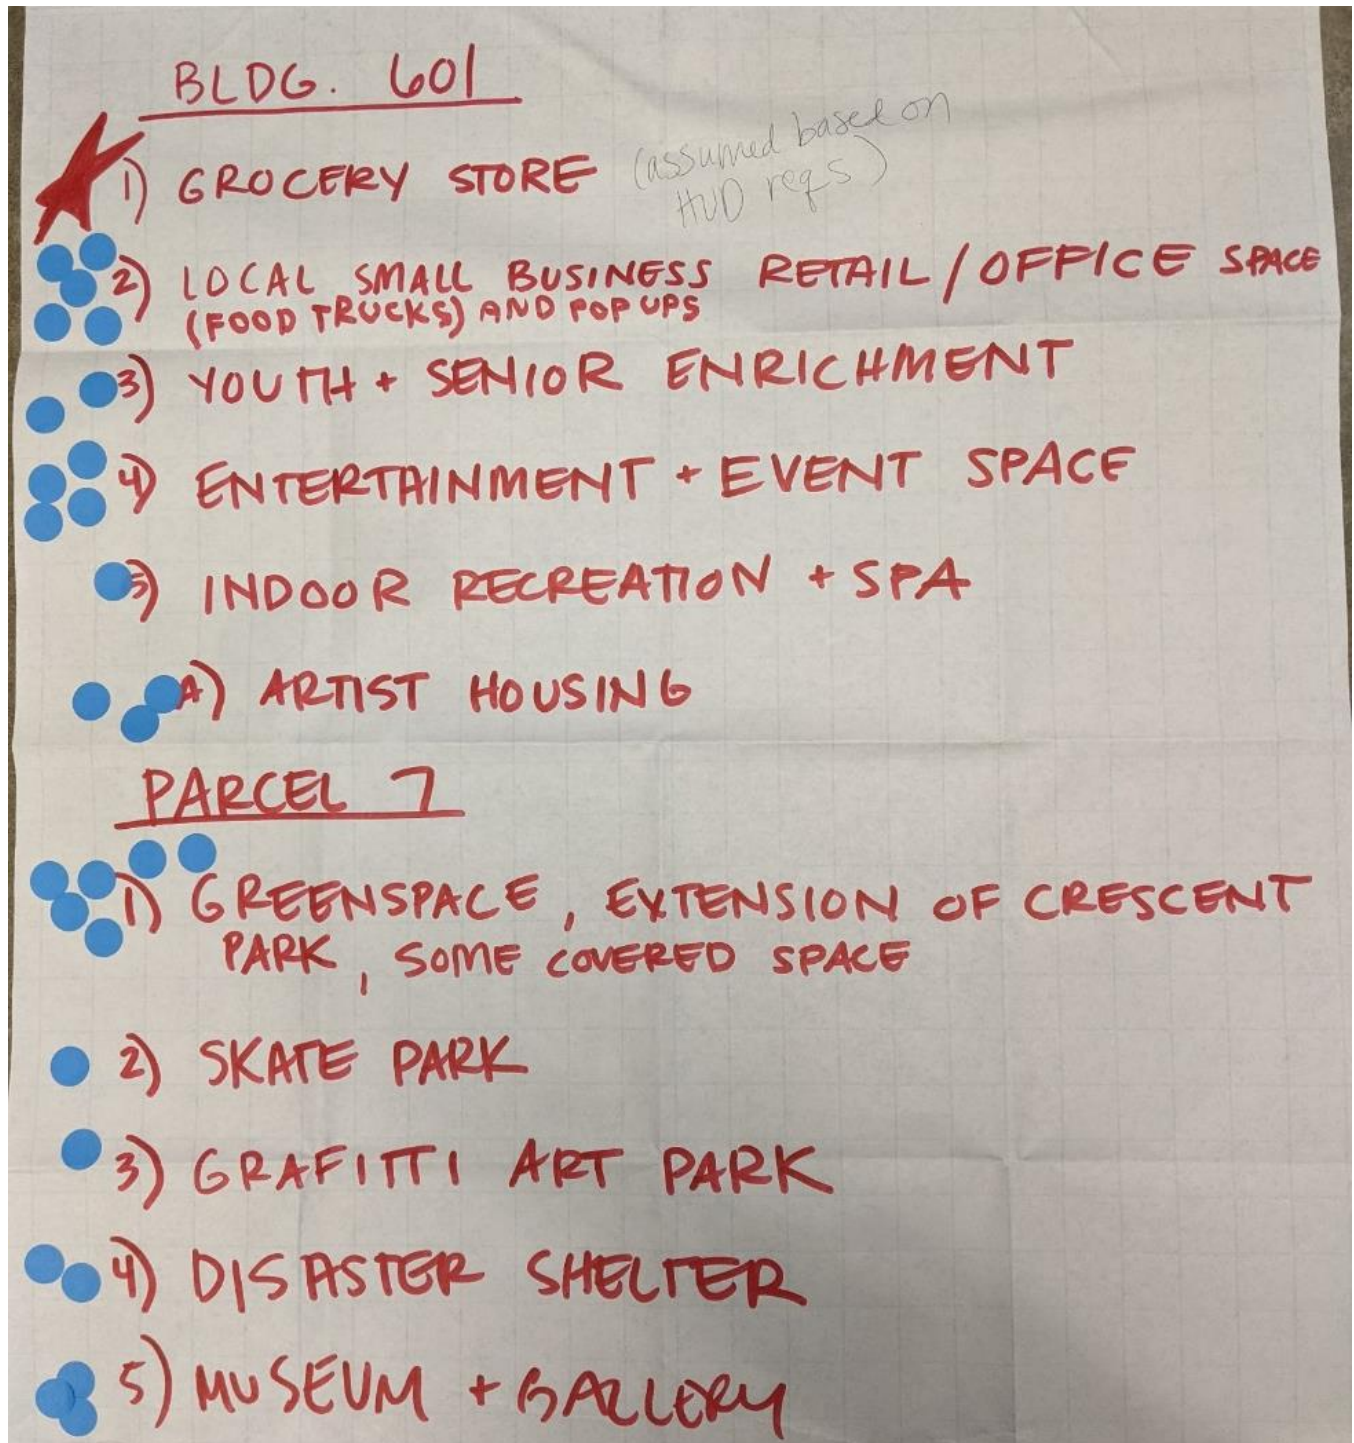 BLDG. 601
1) GROCERY STORE (assumed based on
HUD reqs)
2) LOCAL SMALL BUSINESS RETAIL/OFFICE SPACE
(FOOD TRUCKS) AND POP UPS
3) YOUTH + SENIOR ENRICHMENT
4) ENTERTAINMENT + EVENT SPACE
5) INDOOR RECREATION + SPA
A) ARTIST HOUSING
PARCEL 7
1) GREENSPACE, EXTENSION OF CRESCENT
PARK, SOME COVERED SPACE
2) SKATE PARK
3) GRAFITTI ART PARK
4) DISASTER SHELTER
5) MUSEUM + GALLERY